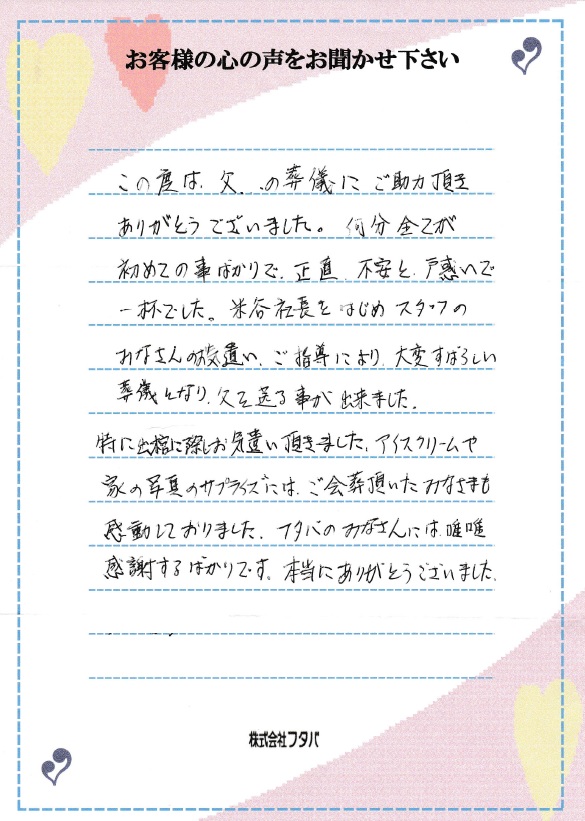 お客様の心の声をお聞かせ下さい
この度は、父、の葬儀に ご助力頂き
ありがとうございました。 何分全てが
初めての事ばかりで、正直、不安と、戸惑いで
一杯でした。米谷社長をはじめスタッフの
みなさんのお気遣い、ご指導により、大変すばらしい
葬儀となり、父を送る事が出来ました。
特に出棺に際しお気遣い頂きました、アイスクリームや
家の写真のサプライズには、ご会葬頂いたみなさまも
感動しておりました。フタバのみなさんには、唯唯
感謝するばかりです。本当にありがとうございました。
株式会社フタバ